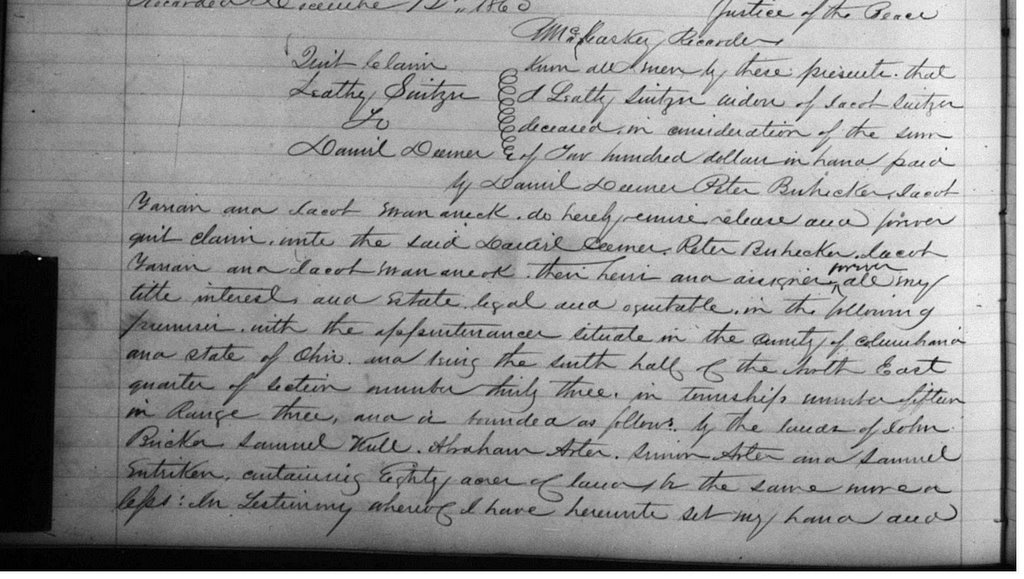 Recorded December 12th, 1865
Justice of the Peace
Recorder
Quit Claim
Leathy Switzer
To
Daniel Deemer
Know all men by these presents that
I Leathy Switzer widow of Jacob Switzer
deceased, in consideration of the sum
of Two hundred dollars in hand paid
by Daniel Deemer Peter Buhecker, Jacob
Yanan and Jacob do hereby remise release and forever
quit claim, unto the said Daniel Deemer, Peter Buhecker, Jacob
Yanan and Jacob their heirs and assigns, forever all my
title interest, and Estate legal and equitable, in the following
premises, with the appurtenances situate in the County of Columbiana
and State of Ohio. and being the South half of the North East
quarter of Section number thirty three, in township number fifteen
in Range three, and is bounded as follows. by the lands of John
Bricker Samuel Abraham Arter. Simon Arter and Samuel
Entriken, containing Eighty acres of land be the same more or
less: In Testimony whereof I have hereunto set my hand and